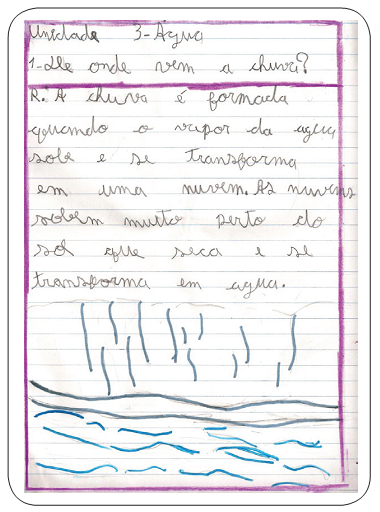 Unidade 3-Água
1-De onde vem a chuva?
R: A chuva é formada
quando o vapor da agua
sobe e se transforma
em uma nuvem. As nuvens
sobem muito perto do
sol que seca e se
transforma em agua.